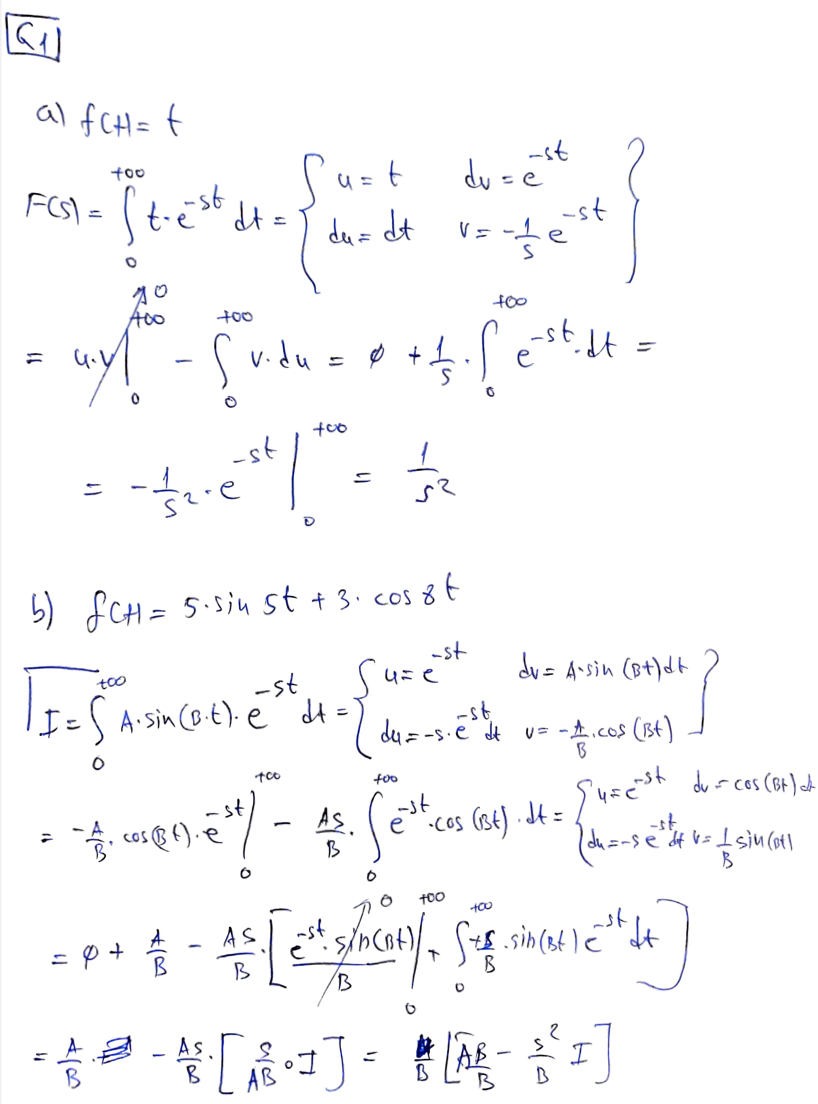 Q1
a) f(t) = t
F(s) = ∫₀^{+∞} t·e^{-st} dt = { u = t dv = e^{-st} du = dt v = -1/s e^{-st} }
= u·v |₀^{+∞} → 0 - ∫₀^{+∞} v·du = ø + 1/s · ∫₀^{+∞} e^{-st}·dt =
= -1/s² · e^{-st} |₀^{+∞} = 1/s²
b) f(t) = 5·sin 5t + 3·cos 8t
I = ∫₀^{+∞} A·sin(B·t)·e^{-st} dt = { u = e^{-st} dv = A·sin(Bt)dt du = -s·e^{-st} dt v = -A/B·cos(Bt) }
= -A/B·cos(Bt)·e^{-st} |₀^{+∞} - AS/B · ∫₀^{+∞} e^{-st}·cos(Bt)·dt = { u = e^{-st} dv = cos(Bt)dt du = -s e^{-st} dt v = 1/B sin(Bt) }
= ø + A/B - AS/B · [ e^{-st}·sin(Bt)/B |₀^{+∞} → 0 + ∫₀^{+∞} +s/B · sin(Bt) e^{-st} dt ]
= A/B - AS/B · [ S/AB · I ] = 1/B [ AB/B - s²/B I ]